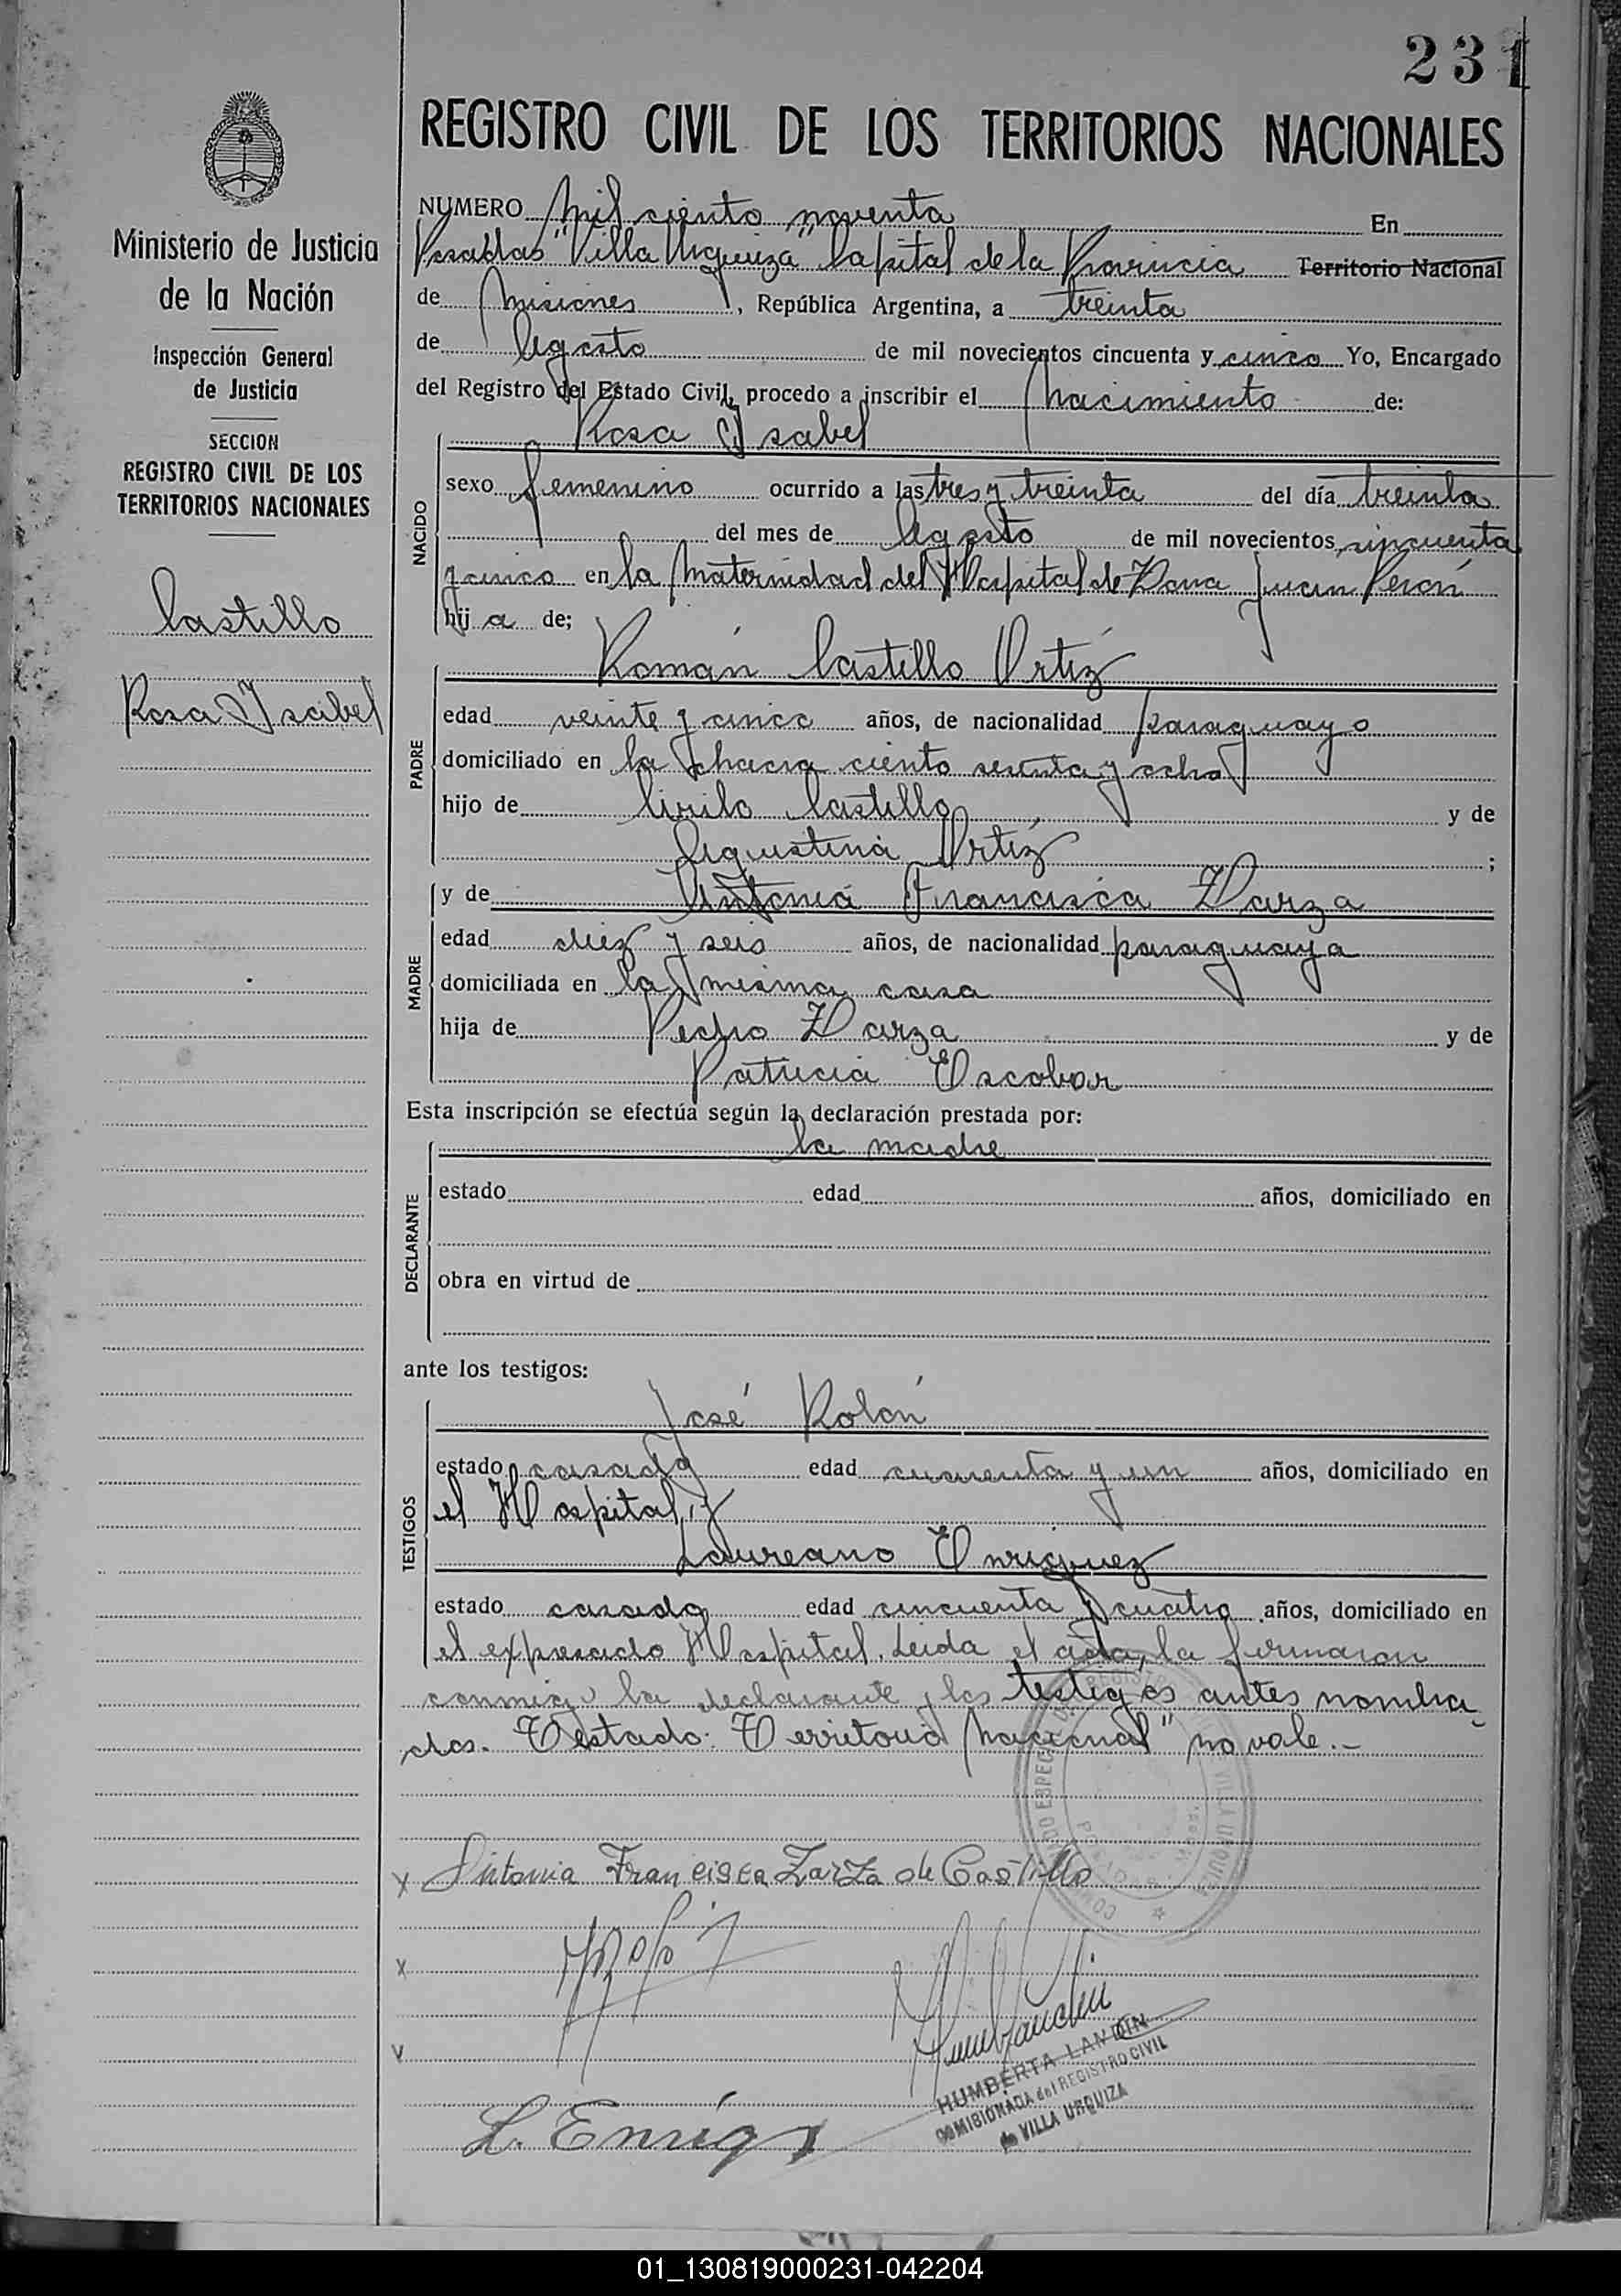 231
REGISTRO CIVIL DE LOS TERRITORIOS NACIONALES
Ministerio de Justicia
de la Nación
Inspección General
de Justicia
SECCION
REGISTRO CIVIL DE LOS
TERRITORIOS NACIONALES
Castillo
Rosa Isabel
NUMERO Mil ciento noventa En
Posadas "Villa Urquiza" Capital de la Provincia Territorio Nacional
de Misiones, República Argentina, a treinta
de Agosto de mil novecientos cincuenta y cinco Yo, Encargado
del Registro del Estado Civil, procedo a inscribir el nacimiento de:
Rosa Isabel
NACIDO
sexo femenino ocurrido a las tres y treinta del día treinta
del mes de Agosto de mil novecientos cincuenta
y cinco en la Maternidad del Hospital de Zona Juan Perón
hija de;
Román Castillo Ortíz
PADRE
edad veinte y cinco años, de nacionalidad paraguayo
domiciliado en la chacra ciento sesenta y ocho
hijo de Cirilo Castillo y de
Agustina Ortíz ;
y de Antonia Francisca Zarza
MADRE
edad diez y seis años, de nacionalidad paraguaya
domiciliada en la misma casa
hija de Pedro Zarza y de
Patricia Escobar
Esta inscripción se efectúa según la declaración prestada por:
la madre
DECLARANTE
estado edad años, domiciliado en
obra en virtud de
ante los testigos:
José Rolón
TESTIGOS
estado casado edad cuarenta y un años, domiciliado en
el Hospital, y
Laureano Enriquez
estado casado edad cincuenta y cuatro años, domiciliado en
el expresado Hospital. Leida el acta, la firmaron
conmigo la declarante y los testigos antes nombra-
dos. Testado: Territorio Nacional" no vale.-
x Antonia Francisca Zarza de Castillo
x
v
HUMBERTA LANDIN
COMISIONADA del REGISTRO CIVIL
de VILLA URQUIZA
01_130819000231-042204